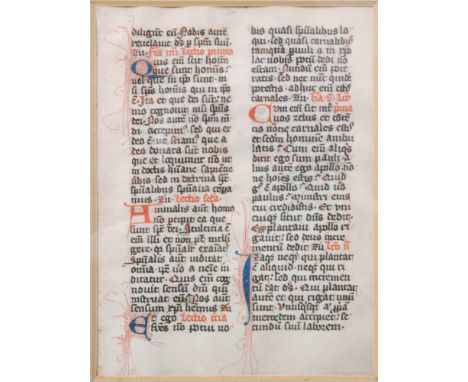 diligūt eū. Nobis autē
reuelauit ds p spm suū.
Tu. lectio prima
Quis em scit hom
que sunt homis
si sps homis qui in ip̄o
ē. Ita et que dei sunt ne
mo cognouit nisi spūs
dei. Nos autē nō spm m̄
di accepim9 sed qui ex
deo ē ut sciam9 que a
deo donata sunt nobis
que et loquimur nō in
doctis humāe sapiēne
ūbis sed in doctrina sp̄s
spūalibus spūalia cōpa
mus. Tu. lectio scda.
Animalis autē homo
nō pcipit ea que
sunt sps dei. Stulticia ē
em illi et non pt̄ intelli
gere. qr spūalit exaiat
Spūalis autē iudicat
omīa. et ip̄e a nēīe iu
dicatur. Quis em cog
nouit sensū dm̄ qui
instruat eū. Nos autē
sensum xpi hem9 Tu
Et ego lectio iiia
fr̄es nō potui uo
bis quasi spūalibus lo
qui sed quasi carnalibus
tamquā puulis in xp̄o
lac uobis potū dedi nō
escam. Nundū em pote
ratis. sed nec nūc quidē
potestis. adhuc em estis
carnales. Tu.
Cum em sit int̄ uos
zelus et cōtēc̄
nōne carnales estis
et scdm homīnē ambu
latis? Cum em aliq̄s
dicit ego sum pauli. a
lius autē ego apollo. nō
ne hoīes estis? Quid
g̊ ē apollo? Quid uo
paulus? Ministri eius
cui credidistis. Et uni
cuiq3 sicut dn̄s dedit.
Ego plantaui apollo ri
gauit: sed deus incre
mentū dedit Tu.
Itaq3 neq3 qui plantat
ē aliquid. neq3 qui ri
gat: sed qui incremen
tū dat ds. Qui plantat
autē et qui rigat unū
sunt. Unusquisq3 a
mercedem accipiet: se
cundū suū laborem.